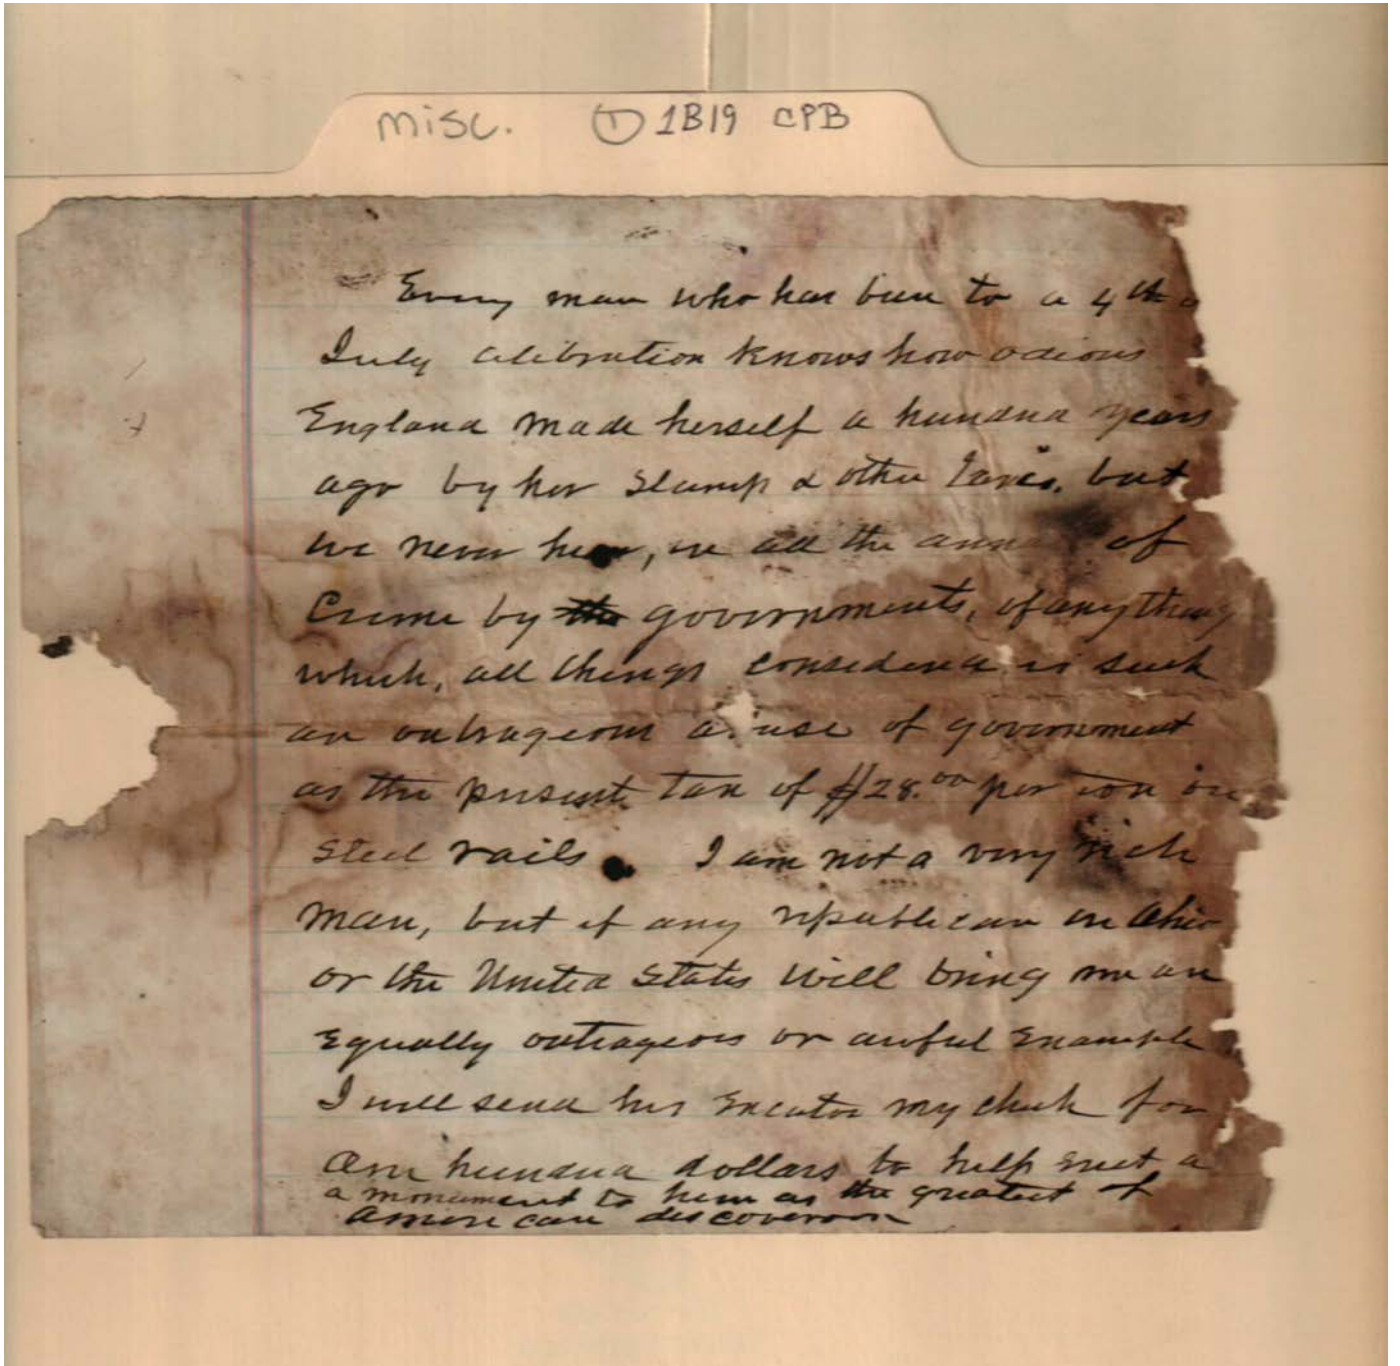 misc. ① 1B19 CPB
Every man who has been to a 4th o
July celebration knows how odious
England made herself a hundred years
ago by her Stamp & other Taxes, but
we never hear, in all the ann of
Crime by the governments, of anything
which, all things considered is such
an outrageous a use of government
as the present tax of $28.00 per ton on
steel rails. I am not a very rich
man, but if any republican in Ohio
or the United States will bring me an
Equally outrageous or awful Example
I will send his Executor my check for
One hundred dollars to help erect a
a monument to him as the greatest of
American discoverers